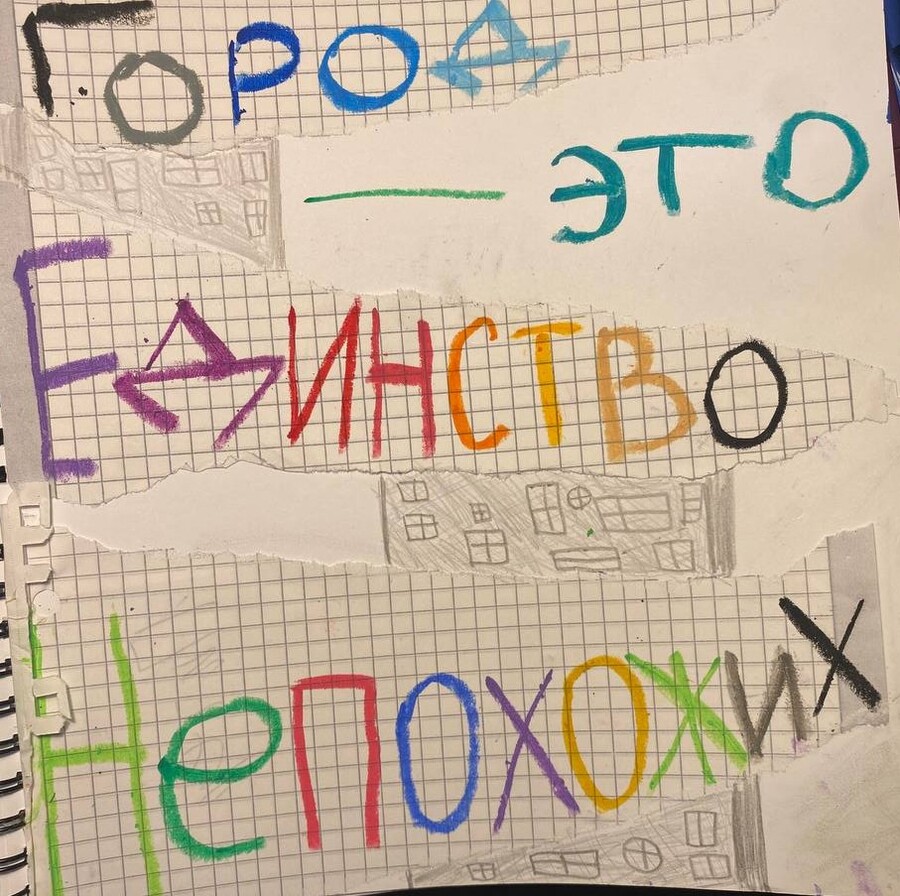 Город
— это
Единство
Непохожих